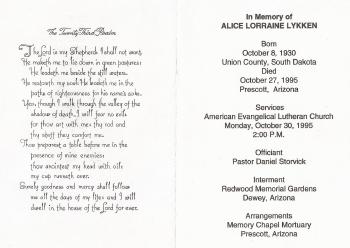 The Twenty Third Psalm
The Lord is my Shepherd; I shall not want.
He maketh me to lie down in green pastures:
He leadeth me beside the still waters.
He restoreth my soul: He leadeth me in the
paths of righteousness for his name's sake.
Yea, though I walk through the valley of the
shadow of death, I will fear no evil:
for thou art with me; thy rod and
thy staff they comfort me.
Thou preparest a table before me in the
presence of mine enemies:
thou anointest my head with oil;
my cup runneth over.
Surely goodness and mercy shall follow
me all the days of my life: and I will
dwell in the house of the Lord for ever.
In Memory of
ALICE LORRAINE LYKKEN
Born
October 8, 1930
Union County, South Dakota
Died
October 27, 1995
Prescott, Arizona
Services
American Evangelical Lutheran Church
Monday, October 30, 1995
2:00 P.M.
Officiant
Pastor Daniel Storvick
Interment
Redwood Memorial Gardens
Dewey, Arizona
Arrangements
Memory Chapel Mortuary
Prescott, Arizona